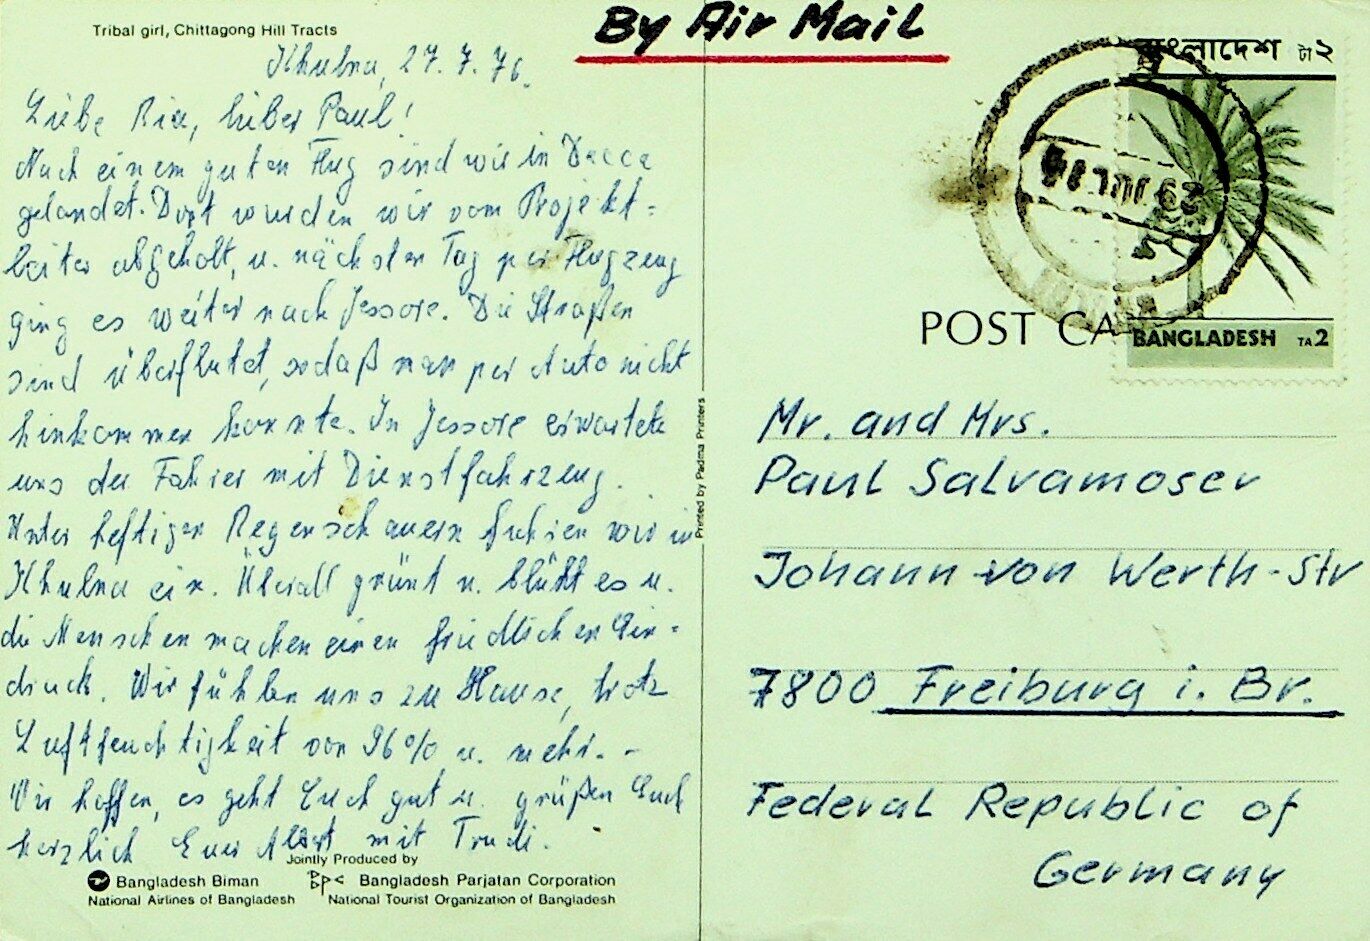 Tribal girl, Chittagong Hill Tracts
Khulna, 27.7.76.
Liebe Ria, lieber Paul!
Nach einem guten Flug sind wir in Dacca
gelandet. Dort wurden wir vom Projekt=
leiter abgeholt, u. nächsten Tag per Flugzeug
ging es weiter nach Jessore. Die Straßen
sind überflutet, sodaß man per Auto nicht
hinkommen konnte. In Jessore erwartete
uns der Fahrer mit Dienstfahrzeug.
Unter heftigen Regenschauern fuhren wir in
Khulna ein. Überall grünt u. blüht es u.
die Menschen machen einen friedlichen Ein=
druck. Wir fühlen uns zu Hause, trotz
Luftfeuchtigkeit von 96% u. mehr. -
Wir hoffen, es geht Euch gut u. grüßen Euch
herzlich Euer Albert mit Trudi.
Jointly Produced by
Bangladesh Biman
National Airlines of Bangladesh
Bangladesh Parjatan Corporation
National Tourist Organization of Bangladesh
Printed by Padma Printers
By Air Mail
বাংলাদেশ টা ২
POST CA
BANGLADESH TA 2
Mr. and Mrs.
Paul Salvamoser
Johann-von Werth-Str
7800 Freiburg i. Br.
Federal Republic of
Germany